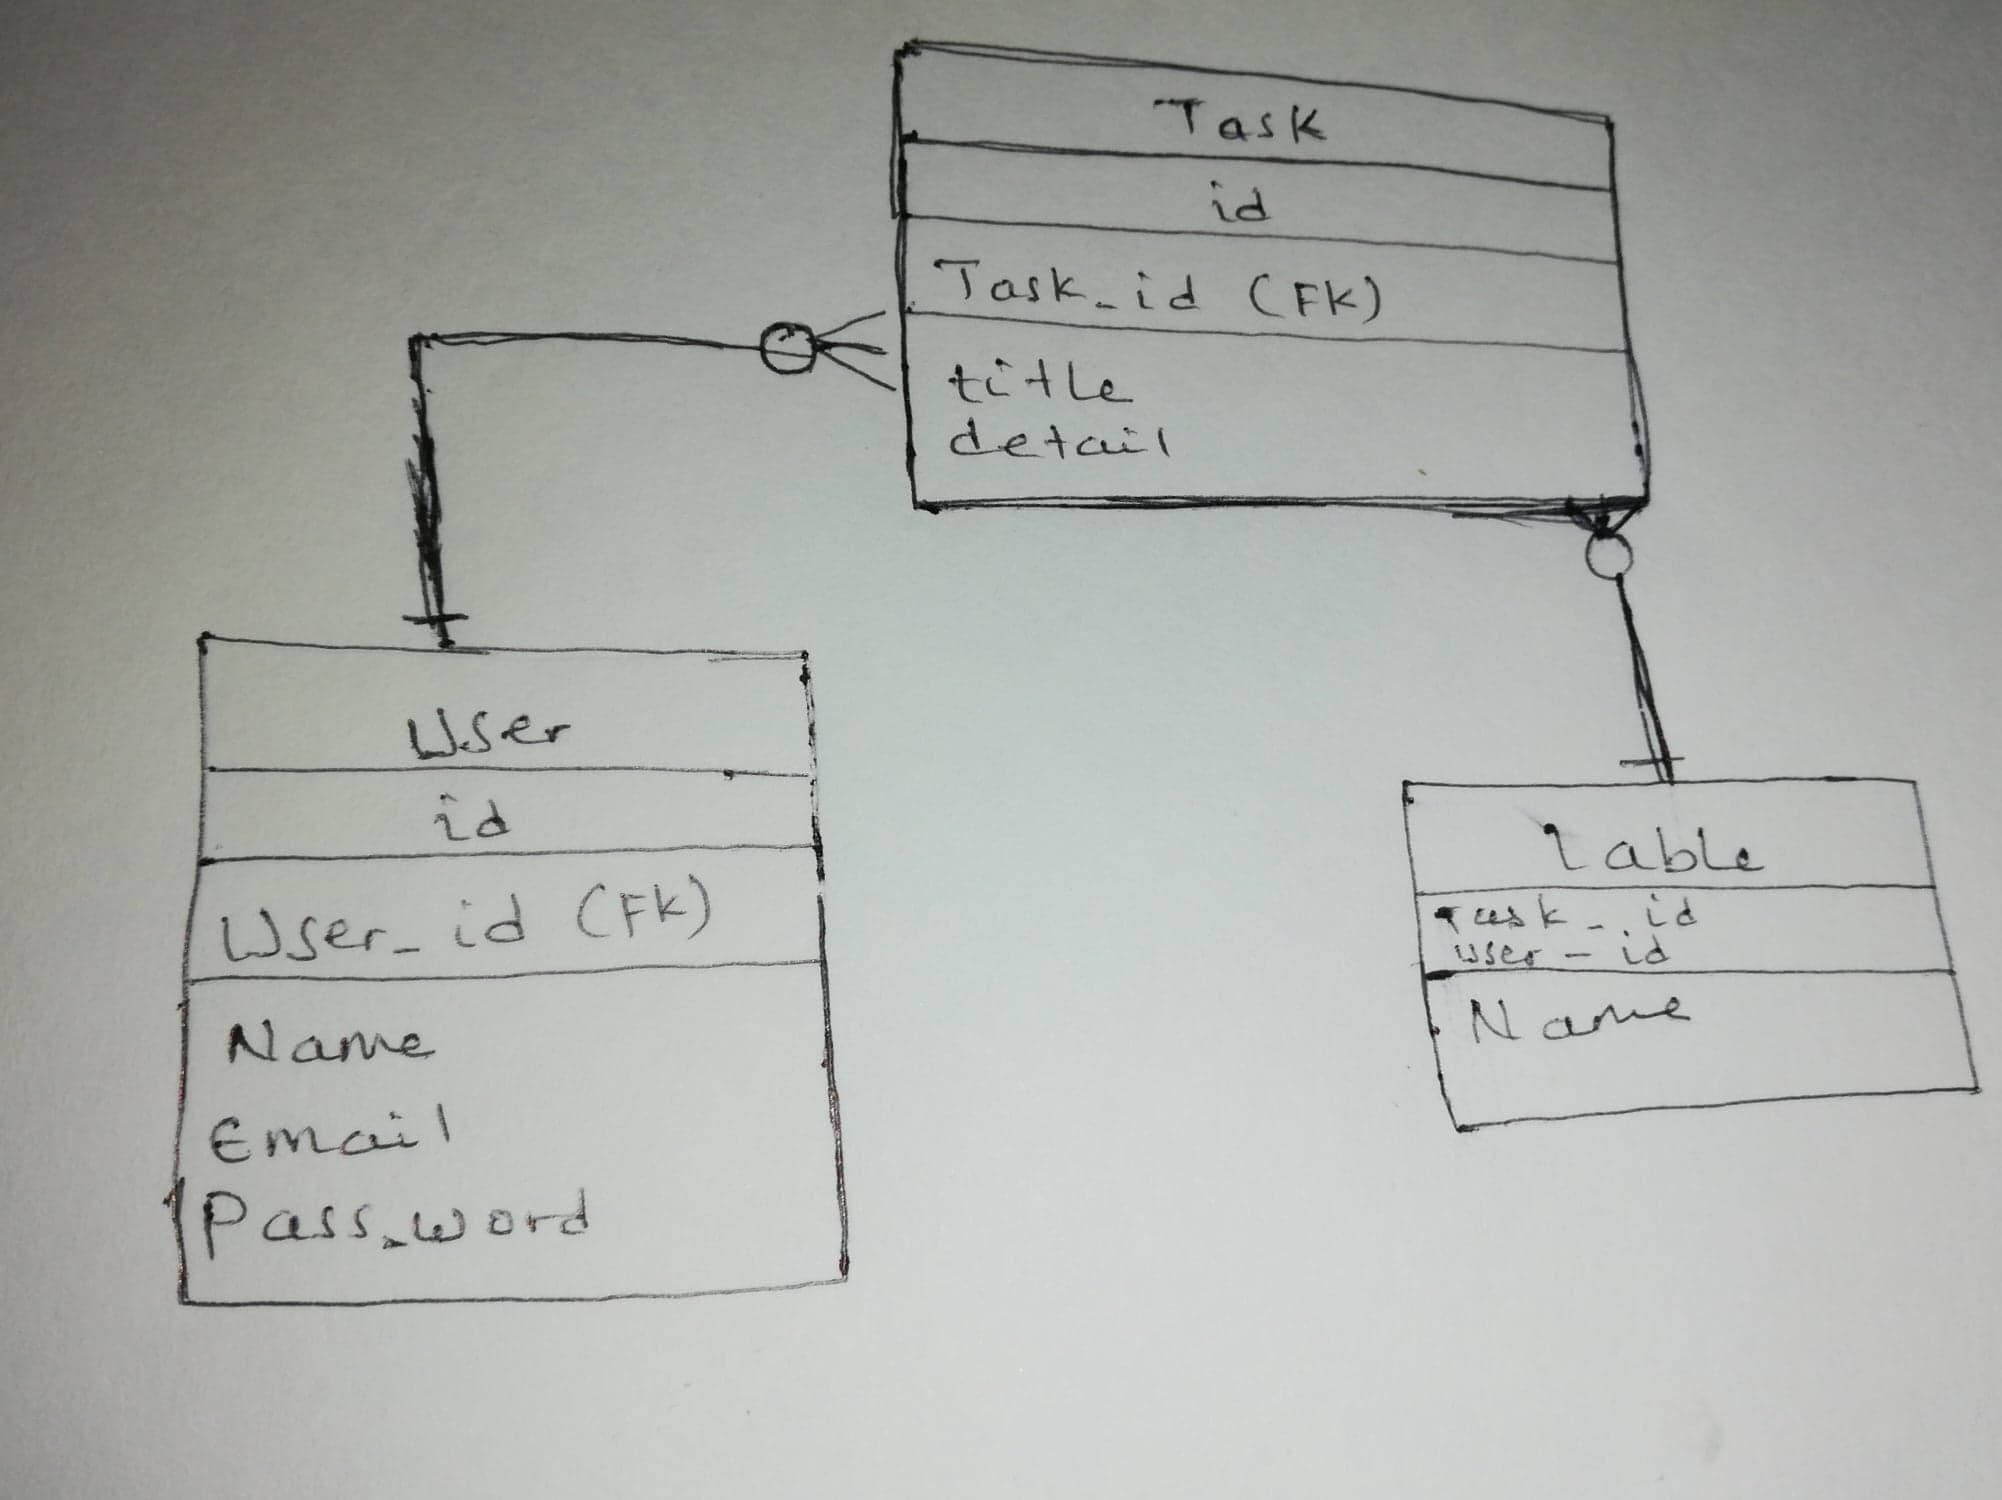 Task
id
Task_id (FK)
title
detail
User
id
User_id (FK)
Name
Email
Pass_word
Table
Task_id
user_id
Name